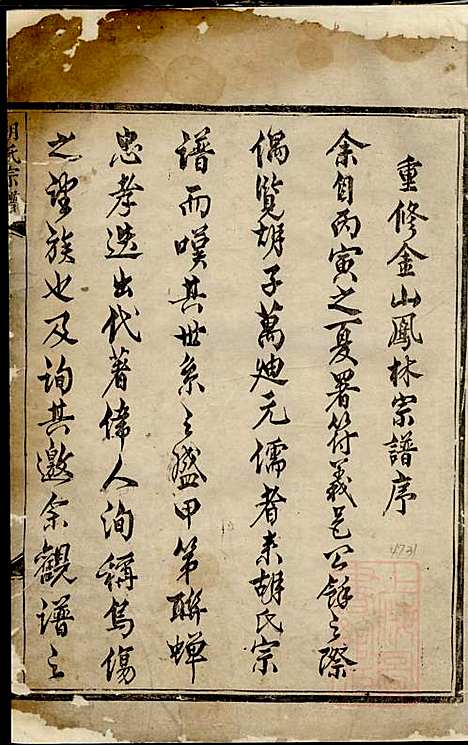 重修金山鳳林宗譜序
余自丙寅之夏署符義邑公餘之際
偶覽胡子萬迪元儒者来胡氏宗
譜而嘆其世系之盛甲第聯蟬
忠孝迭出代著偉人洵稱烏傷
之望族也及詢其邀余觀譜之
胡氏宗譜
4731